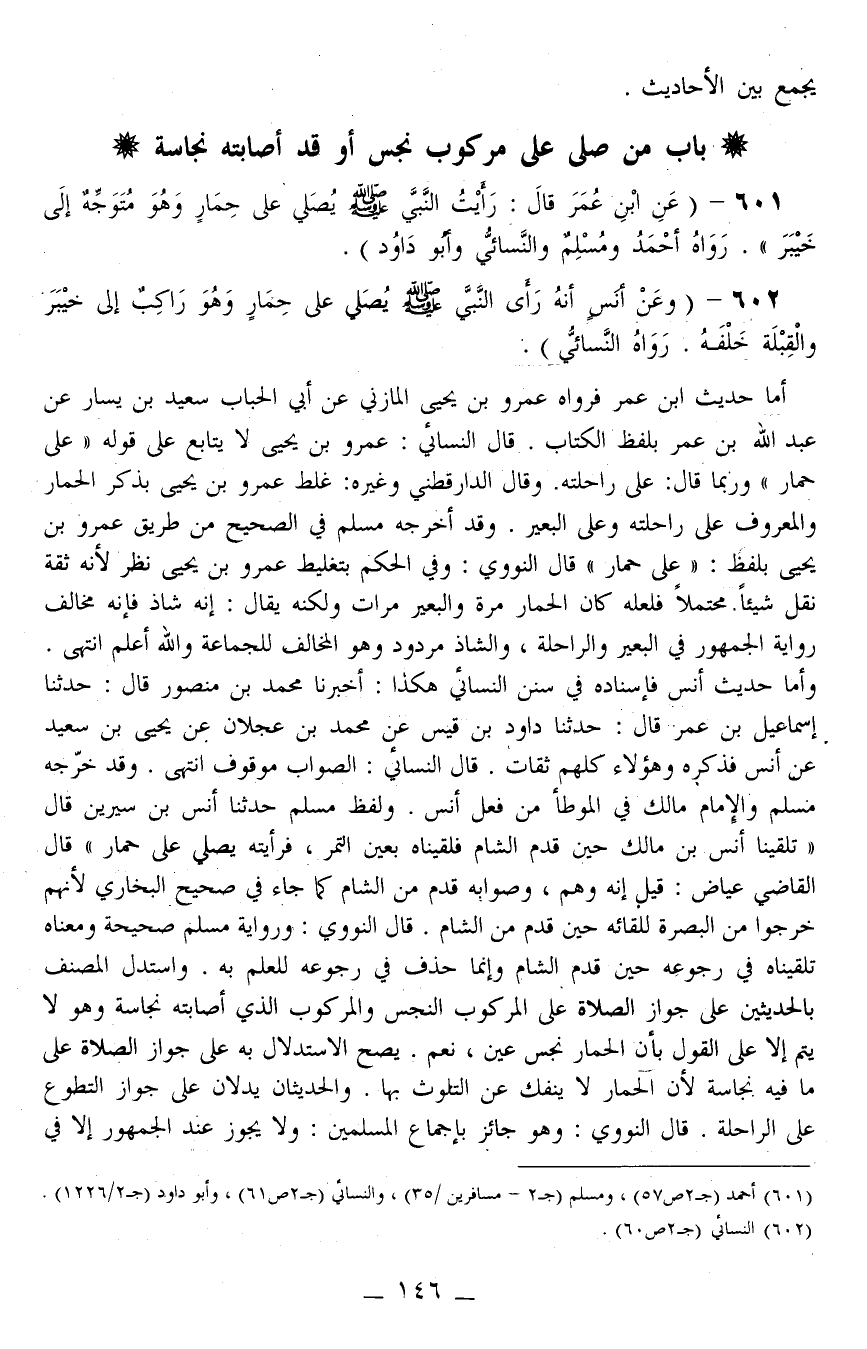 يجمع بين الأحاديث .
❋ باب من صلى على مركوب نجس أو قد أصابته نجاسة ❋
٦٠١ – ( عَنِ ابْنِ عُمَرَ قالَ : رَأَيْتُ النَّبيَّ ﷺ يُصَلي على حِمَارٍ وَهُوَ مُتَوَجِّهٌ إلَى
خَيْبَرَ » . رَوَاهُ أحْمَدُ ومُسْلِمٌ والنَّسائيُّ وأبُو دَاوُد ) .
٦٠٢ – ( وعَنْ أنَسٍ أنهُ رَأَى النَّبيَّ ﷺ يُصَلي على حِمَارٍ وَهُوَ رَاكِبٌ إلى خَيْبَرَ
والْقِبْلَة خَلْفَهُ . رَوَاهُ النَّسائيُّ ) .
أما حديث ابن عمر فرواه عمرو بن يحيى المازني عن أبي الحباب سعيد بن يسار عن
عبد الله بن عمر بلفظ الكتاب . قال النسائي : عمرو بن يحيى لا يتابع على قوله « على
حمار » وربما قال: على راحلته. وقال الدارقطني وغيره: غلط عمرو بن يحيى بذكر الحمار
والمعروف على راحلته وعلى البعير . وقد أخرجه مسلم في الصحيح من طريق عمرو بن
يحيى بلفظ : « على حمار » قال النووي : وفي الحكم بتغليط عمرو بن يحيى نظر لأنه ثقة
نقل شيئاً محتملاً فلعله كان الحمار مرة والبعير مرات ولكنه يقال : إنه شاذ فإنه مخالف
رواية الجمهور في البعير والراحلة ، والشاذ مردود وهو المخالف للجماعة والله أعلم انتهى .
وأما حديث أنس فإسناده في سنن النسائي هكذا : أخبرنا محمد بن منصور قال : حدثنا
إسماعيل بن عمر قال : حدثنا داود بن قيس عن محمد بن عجلان عن يحيى بن سعيد
عن أنس فذكره وهؤلاء كلهم ثقات . قال النسائي : الصواب موقوف انتهى . وقد خرّجه
مسلم والإمام مالك في الموطأ من فعل أنس . ولفظ مسلم حدثنا أنس بن سيرين قال
« تلقينا أنس بن مالك حين قدم الشام فلقيناه بعين التمر ، فرأيته يصلي على حمار » قال
القاضي عياض : قيل إنه وهم ، وصوابه قدم من الشام كما جاء في صحيح البخاري لأنهم
خرجوا من البصرة للقائه حين قدم من الشام . قال النووي : ورواية مسلم صحيحة ومعناه
تلقيناه في رجوعه حين قدم الشام وإنما حذف في رجوعه للعلم به . واستدل المصنف
بالحديثين على جواز الصلاة على المركوب النجس والمركوب الذي أصابته نجاسة وهو لا
يتم إلا على القول بأن الحمار نجس عين ، نعم . يصح الاستدلال به على جواز الصلاة على
ما فيه نجاسة لأن الحمار لا ينفك عن التلوث بها . والحديثان يدلان على جواز التطوع
على الراحلة . قال النووي : وهو جائز بإجماع المسلمين : ولا يجوز عند الجمهور إلا في
(٦٠١) أحمد (جـ٢ص٥٧) ، ومسلم (جـ٢ – مسافرين /٣٥) ، والنسائي (جـ٢ص٦١) ، وأبو داود (جـ١٢٢٦/٢) .
(٦٠٢) النسائي (جـ٢ص٦٠) .
_ ١٤٦ _